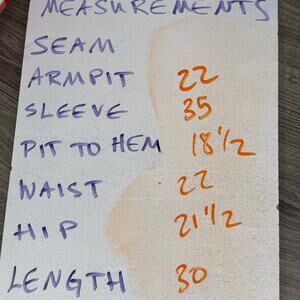 MEASUREMENTS
SEAM
ARMPIT 22
SLEEVE 35
PIT TO HEM 18 1/2
WAIST 22
HIP 21 1/2
LENGTH 30